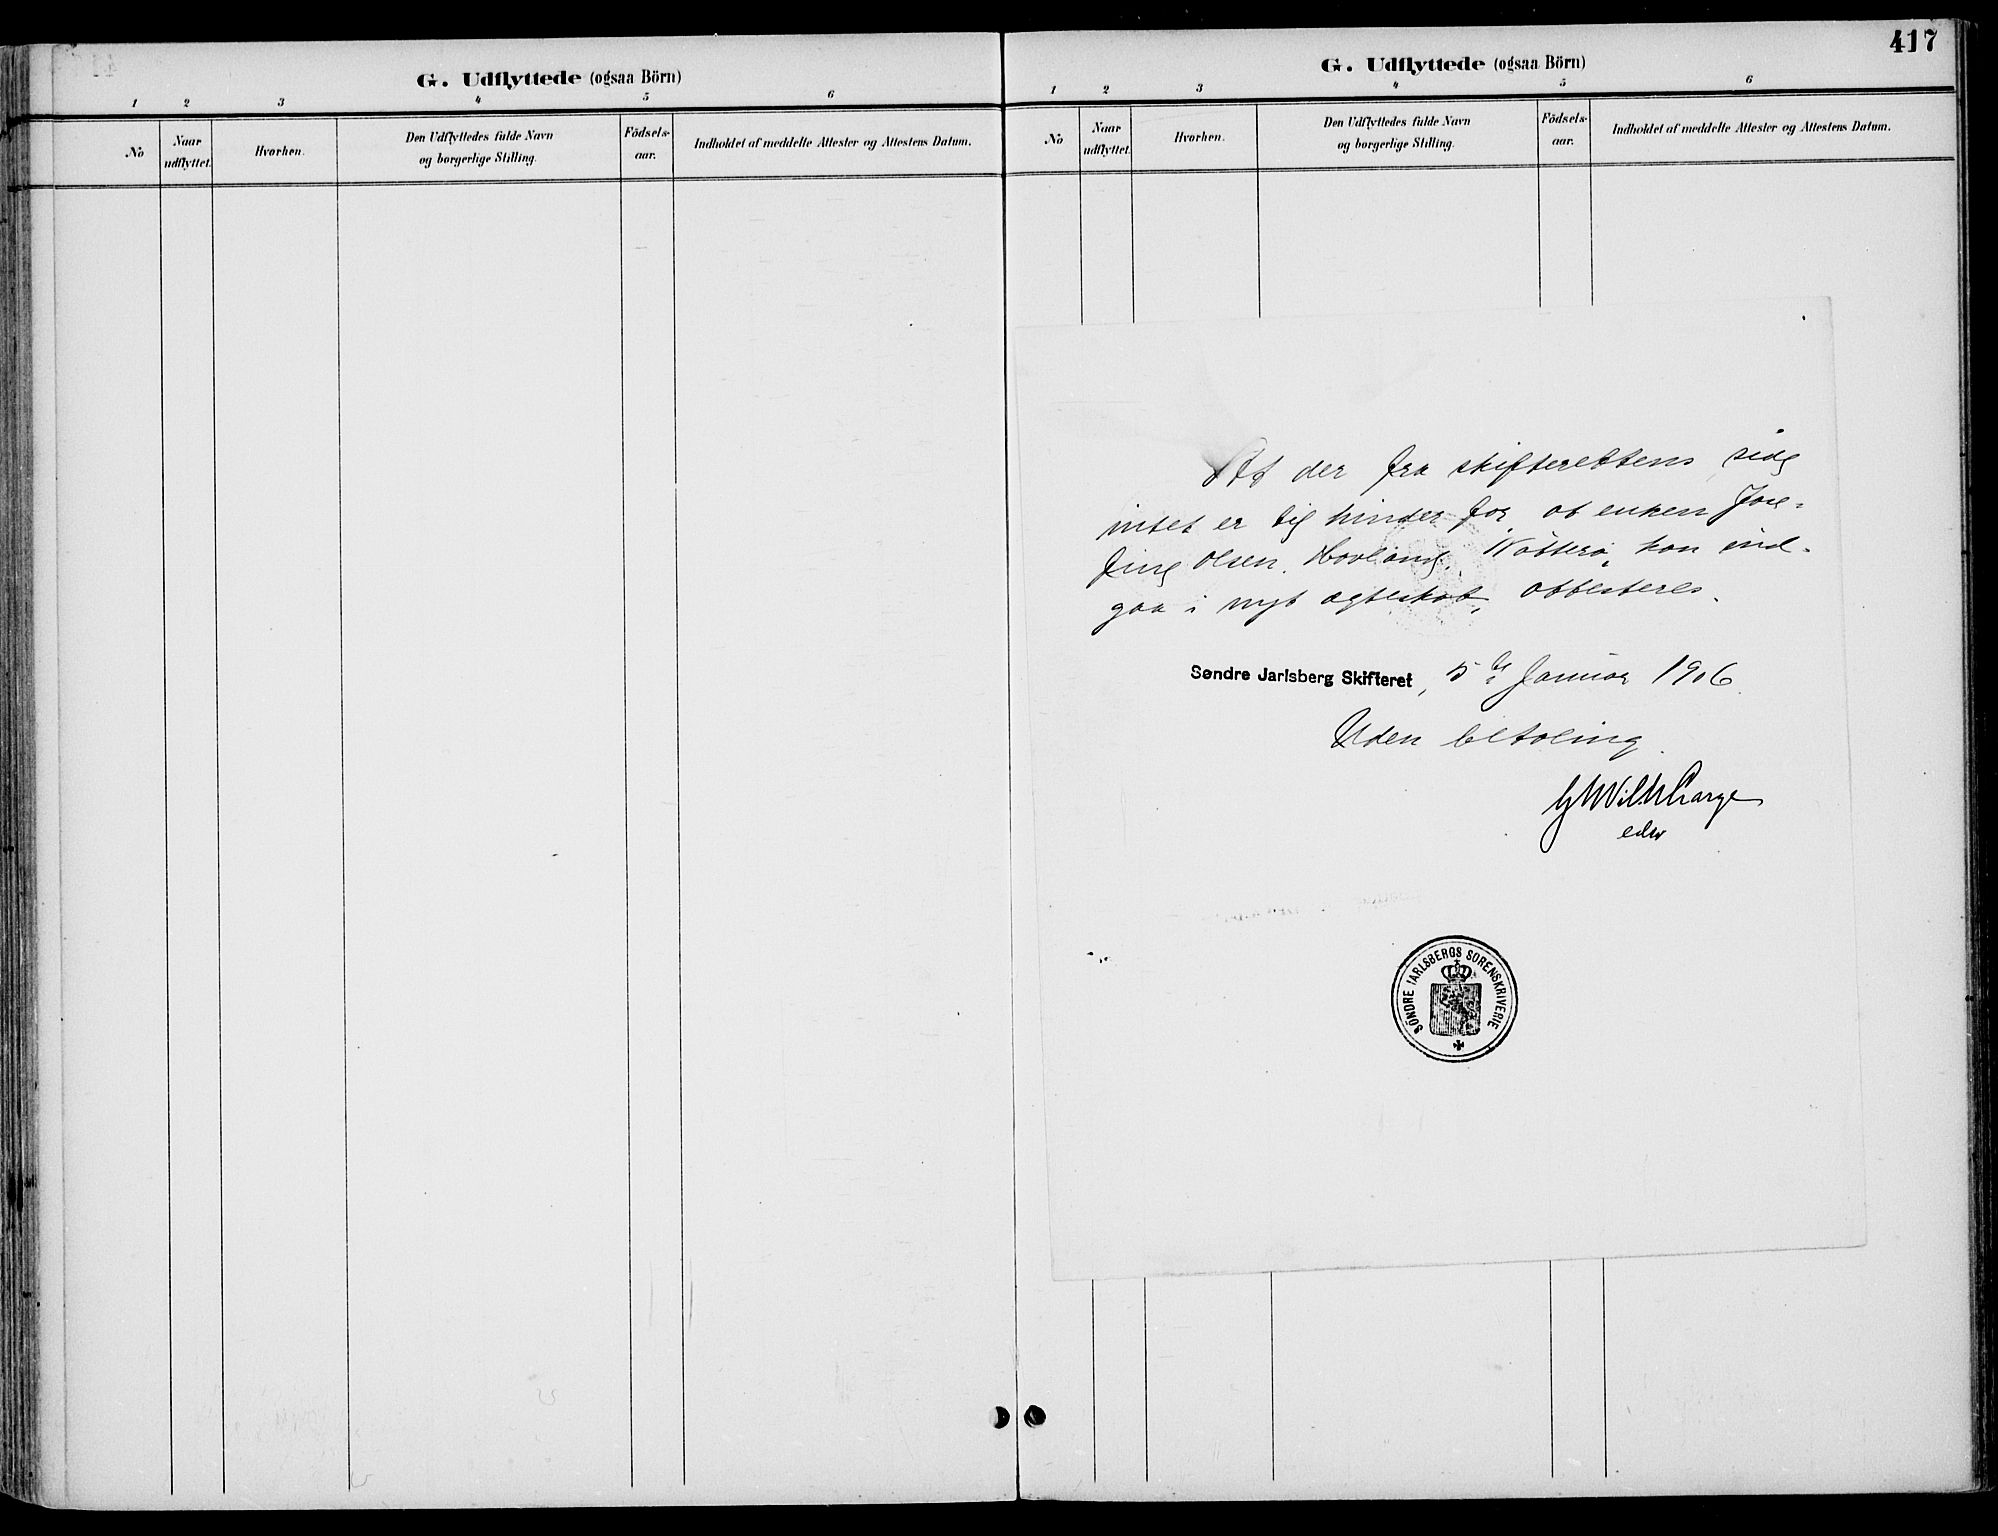 G. Udflyttede (ogsaa Börn)
1 2 3 4 5 6
No
Naar udflyttet.
Hvorhen.
Den Udflyttedes fulde Navn
og borgerlige Stilling.
Födsels-
aar.
Indholdet af meddelte Attester og Attestens Datum.
417
G. Udflyttede (ogsaa Börn)
1 2 3 4 5 6
No
Naar udflyttet.
Hvorhen.
Den Udflyttedes fulde Navn
og borgerlige Stilling.
Födsels-
aar.
Indholdet af meddelte Attester og Attestens Datum.
At der fra skifterettens side
intet er til hinder for at enken Jose-
fine Olsen, Hovland, Nøtterø, kan ind-
gaa i nyt ægteskab, attesteres.
Søndre Jarlsberg Skifteret, 5te Januar 1906.
Uden betaling.
edsv
SÖNDRE JARLSBERGS SORENSKRIVERIE